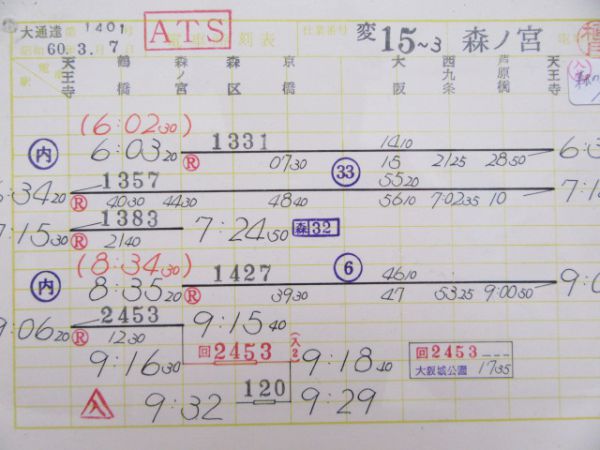 大通達 第1401号
60.3.7
ATS
電車時刻表
仕業番号 変15~3 森ノ宮
駅 天王寺 鶴橋 森ノ宮 森区 京橋 大阪 西九条 芦原橋 天王寺
(6:02 30)
内 6:03 20 R 1331 07 30 14 10 15 21 25 28 50
33
6:34 20 R 1357 40 30 44 30 48 40 55 20 56 10 7:02 35 10
7:15 30 R 1383 21 40 7:24 50 森32
(8:34 30)
内 8:35 20 R 1427 39 30 6 46 10 47 53 25 9:00 50
9:06 20 R 2453 12 30 9:15 40
9:16 30 回2453 (入2) 9:18 40 回2453
大阪城公園 17 35
入 9:32 120 9:29